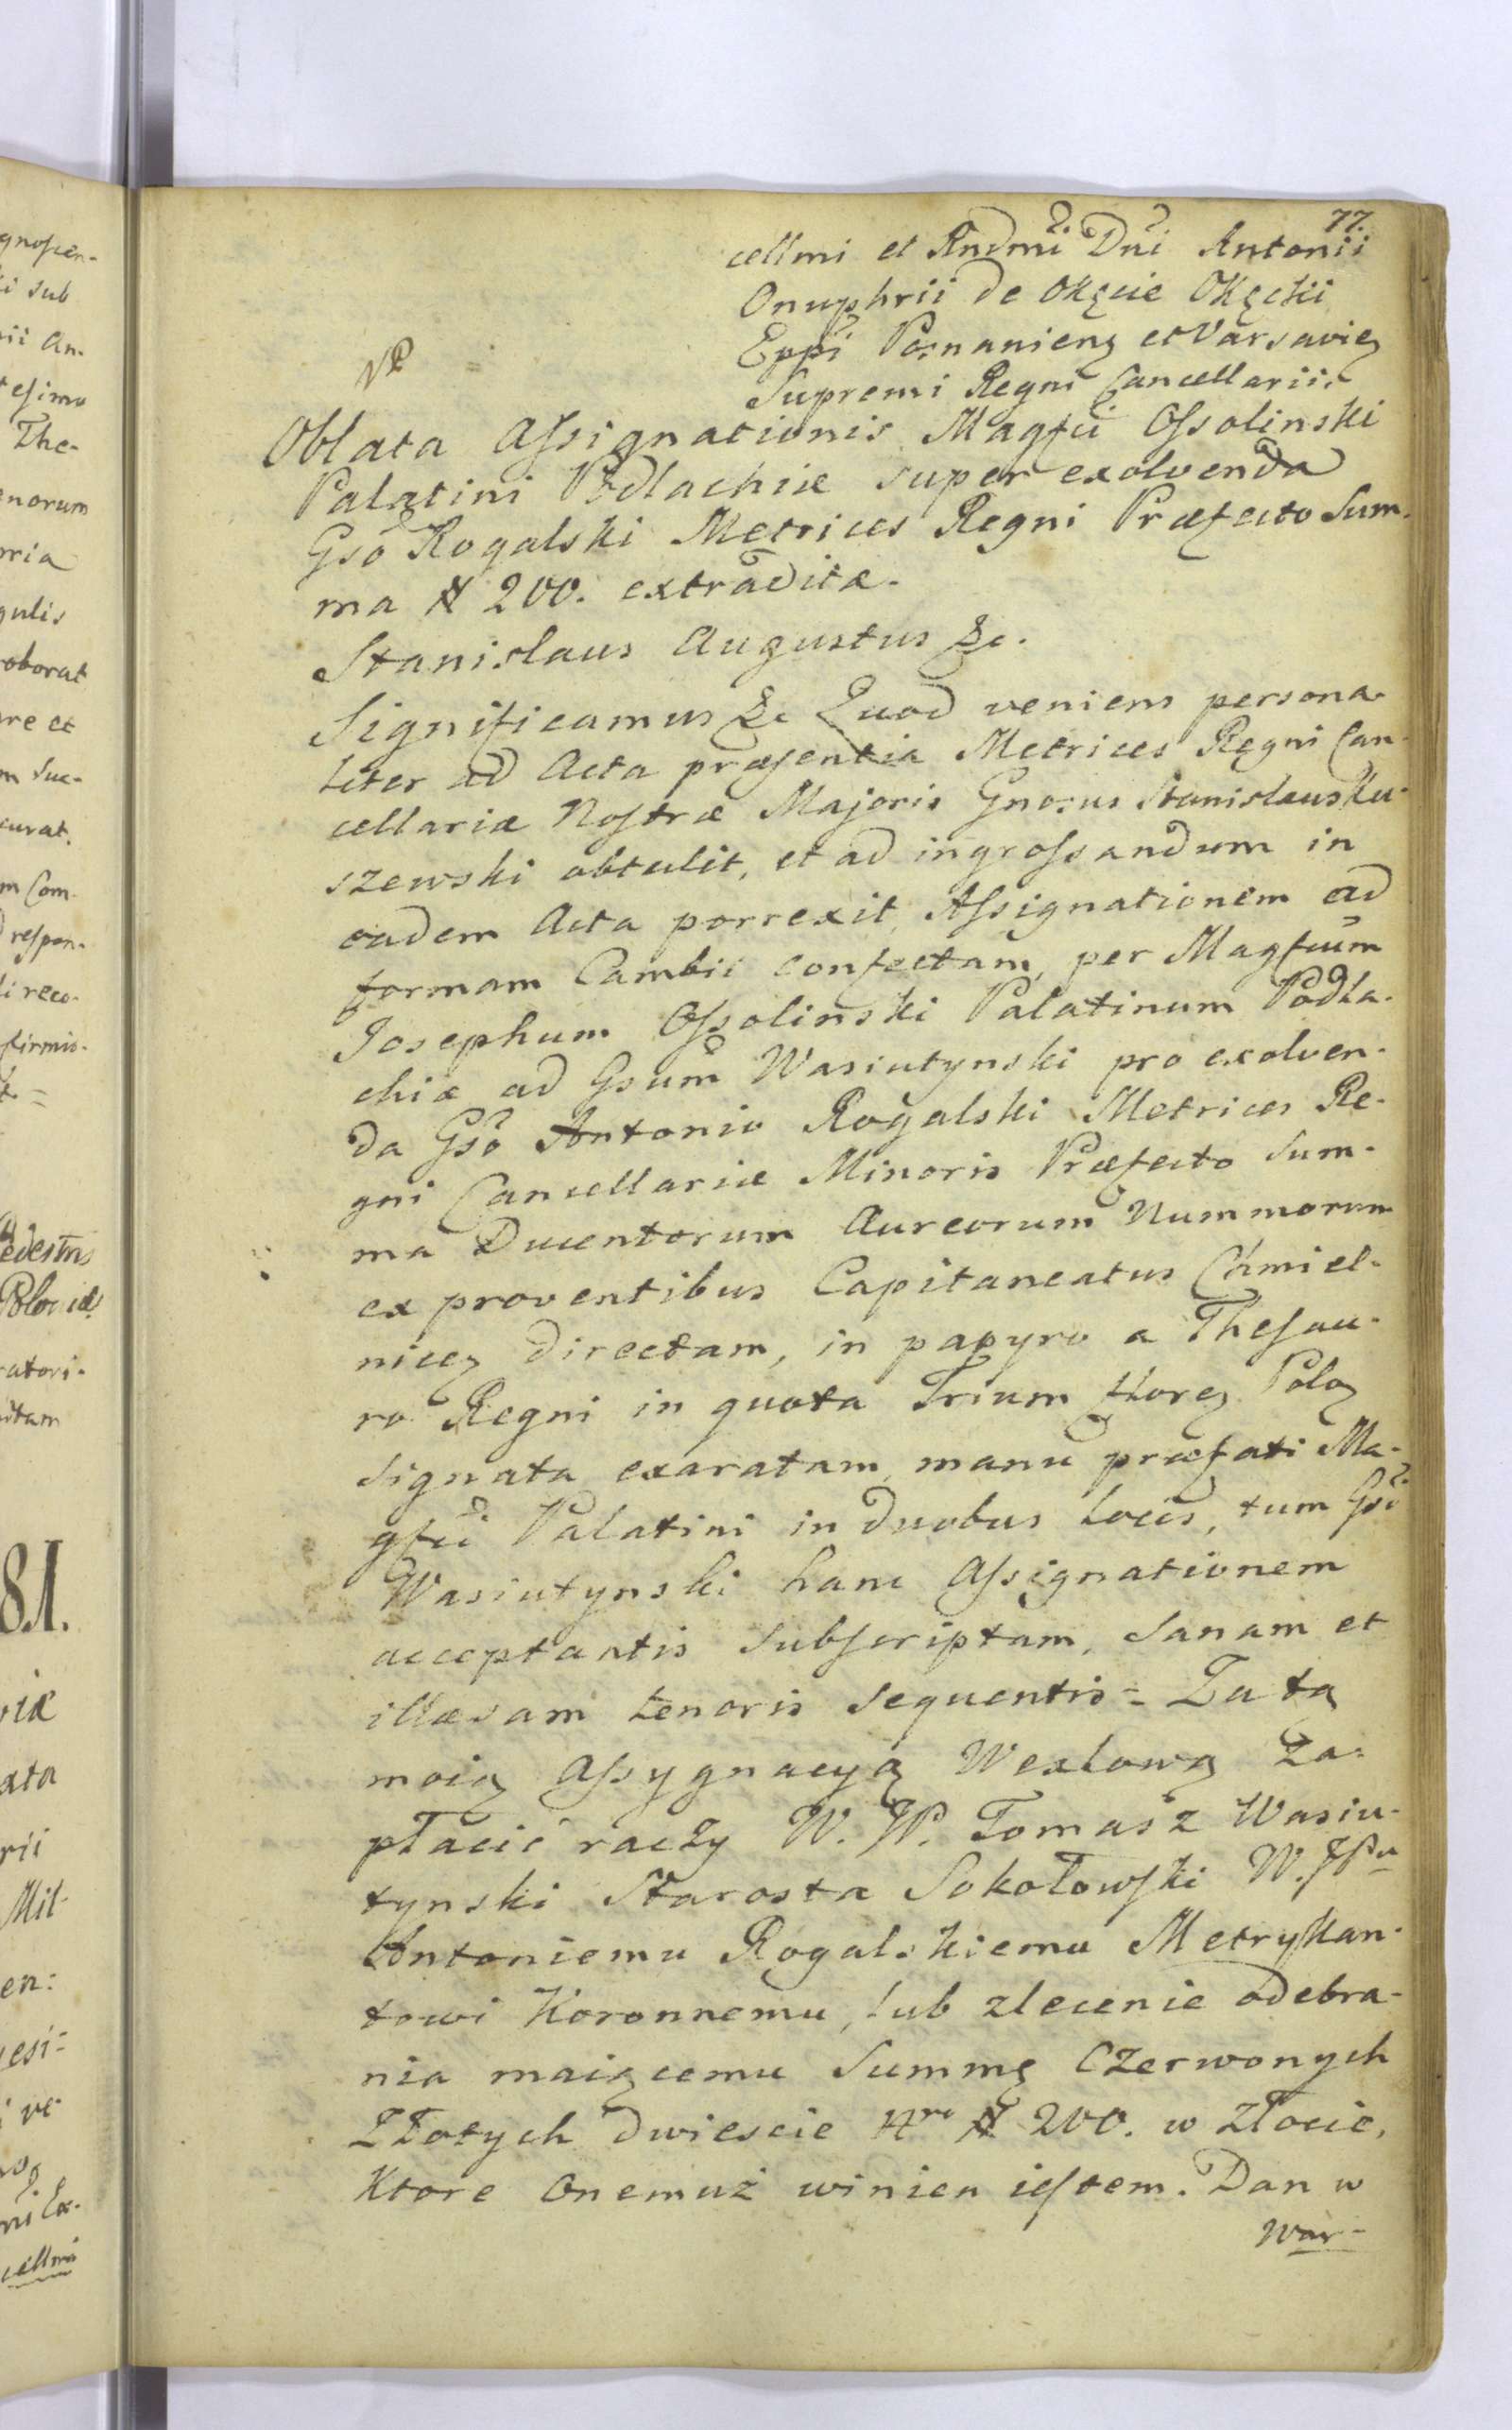 77.
cellmi et Rndmi Dni Antonii
Onuphrii de Okęcie Okęcki
Eppi Posnanienꝫ et Varsavieꝫ
Supremi Regni Cancellarii.
Oblata Assignationis Magfci Ossolinski
Palatini Podlachiæ super exolvenda
Gso Rogalski Metrices Regni Præfecto Sum-
ma # 200. extraditæ.
Stanislaus Augustus &c.
Significamus &c Quod veniens persona-
liter ad Acta præsentia Metrices Regni Can-
cellariæ Nostræ Majoris Gnosus Stanislaus Ku-
szewski obtulit, et ad ingrossandum in
eadem Acta porrexit, Assignationem ad
formam Cambii confectam, per Magfcum
Josephum Ossolinski Palatinum Podla-
chiæ ad Gsum Wasiutynski pro exolven-
da Gso Antonio Rogalski Metrices Re-
gni Cancellariæ Minoris Præfecto Sum-
ma Ducentorum Aureorum Nummorum
ex proventibus Capitaneatus Chmiel-
niceꝫ directam, in papyro a Thesau-
ro Regni in quota Trium floreꝫ Poloꝫ
signata exaratam, manu præfati Ma-
gfci Palatini in duobus locis, tum Gsi
Wasiutynski hanc Assignationem
acceptantis subscriptam, sanam et
illæsam tenoris sequentis = Za tą
moią Assygnacyą Wexlową za-
płacić raczy W. JP. Tomasz Wasiu-
tynski Starosta Sokołowski W. JPu
Antoniemu Rogalskiemu Metrykan-
towi Koronnemu, lub zlecenie odebra-
nia maiącemu Summę Czerwonych
Złotych dwiescie Nro # 200. w złocie,
Ktore Onemuż winien iestem. Dan w
War-